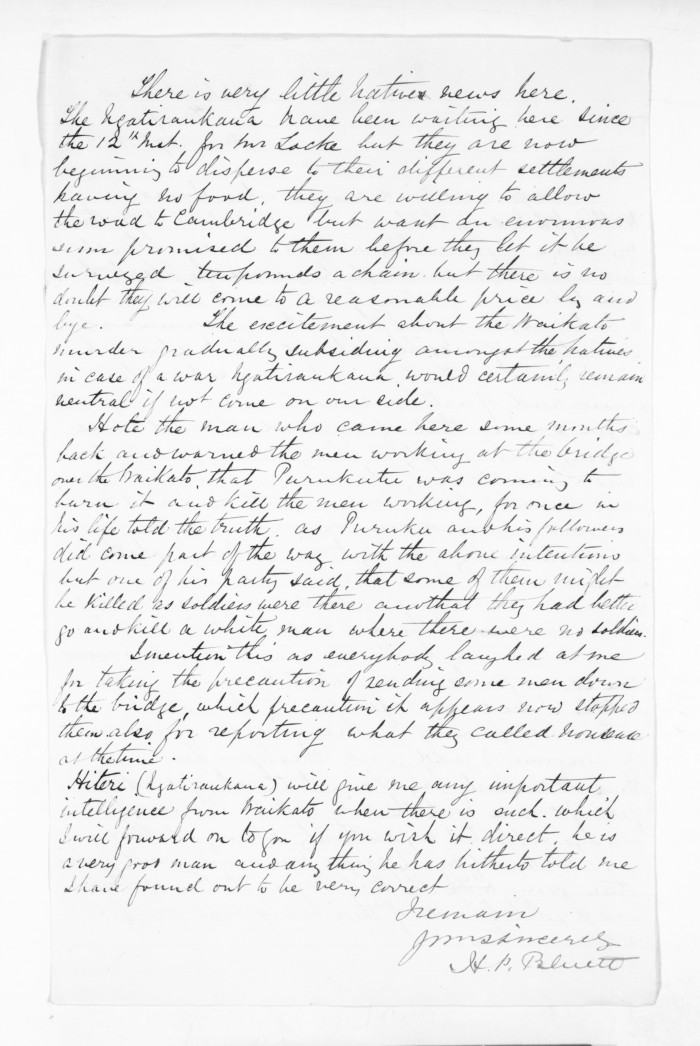 There is very little Native news here.
The Ngatiraukaua have been waiting here since
the 12th Inst. for Mr Locke but they are now
beginning to disperse to their different settlements
having no food, they are willing to allow
the road to Cambridge but want an enormous
sum promised to them before they let it be
surveyed ten pounds a chain but there is no
doubt they will come to a reasonable price by and
bye. The excitement about the Waikato
murder gradually subsiding amongst the Natives
in case of a war Ngatiraukaua would certainly remain
neutral if not come on our side.
Hote the man who came here some months
back and warned the men working at the bridge
over the Waikato, that Purukutu was coming to
burn it and kill the men working, for once in
his life told the truth, as Puruku and his followers
did come part of the way with the above intentions
but one of his party said, that some of them might
be killed as soldiers were there and that they had better
go and kill a white man where there were no soldiers.
I mention this as everybody laughed at me
for taking the precaution of sending some men down
to the bridge, which precaution it appears now stopped
them also for reporting what they called nonsense
at the time.
Hiteri (Ngatiraukaua) will give me any important
intelligence from Waikato when there is such. which
I will forward on to you if you wish it direct, he is
a very good man and any thing he has hitherto told me
I have found out to be very correct
I remain
Yours sincerely
H. P. Bluett